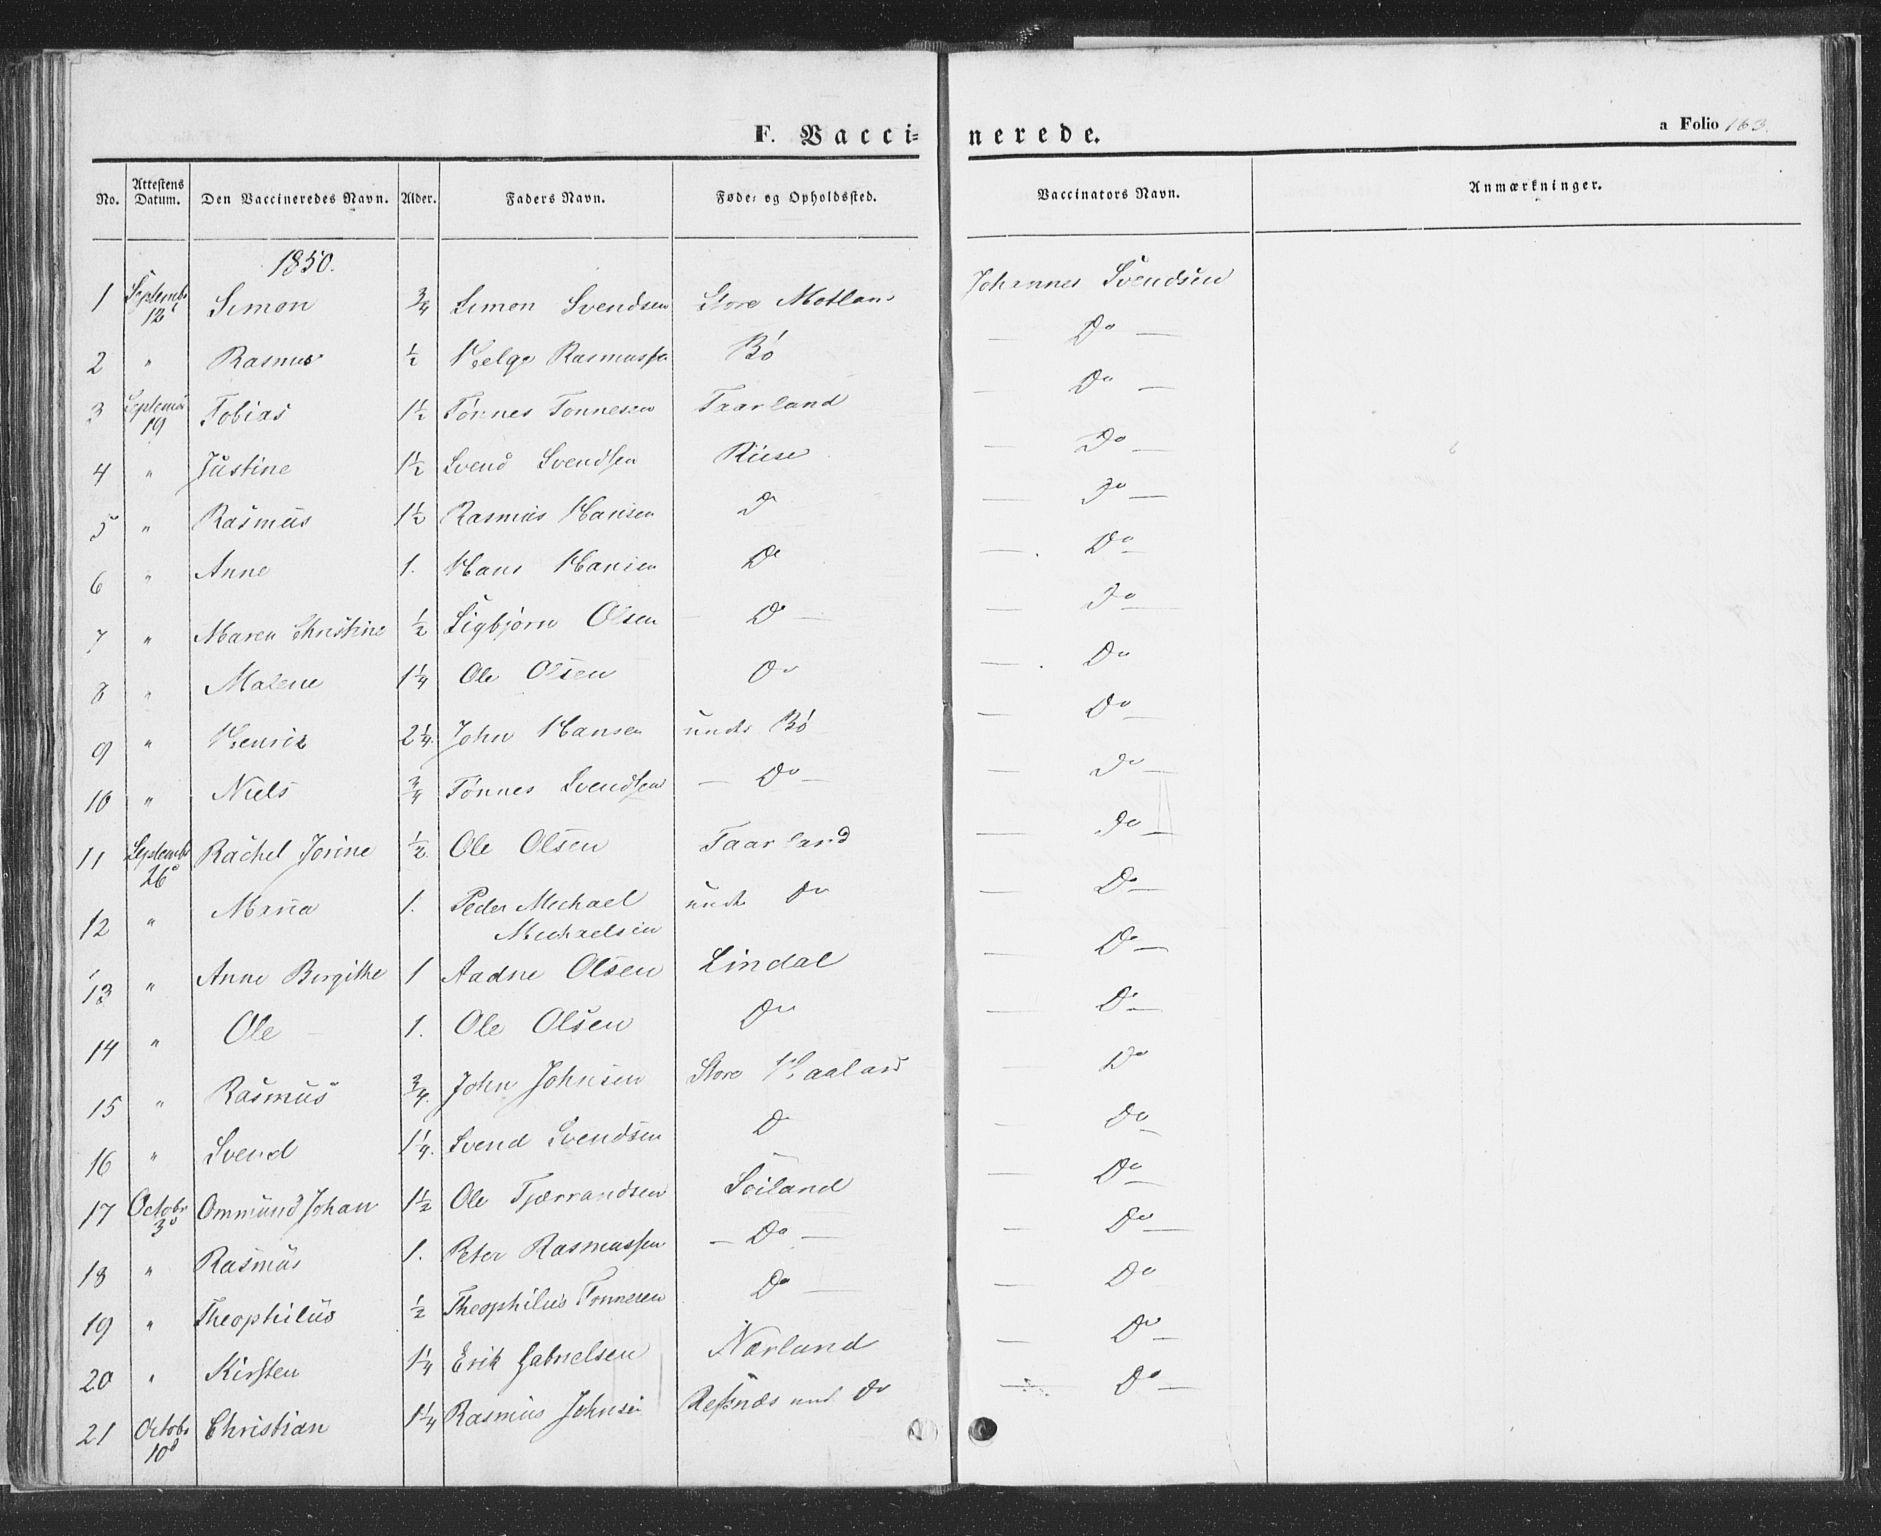 F. Vacci= nerede.
a Folio 163.
No. Attestens Datum. Den Vaccineredes Navn. Alder. Faders Navn. Føde= og Opholdssted. Vaccinators Navn. Anmærkninger.
1850.
1 Septembr 12 Simon 3/4 Simon Svendsen Store Motland Johannes Svendsen
2 " Rasmus 1/2 Helge Rasmussen Bø — Do —
3 Septembr 19 Tobias 1 1/2 Tønnes Tønnesen Taarland — Do —
4 " Justine 1 1/2 Svend Svendsen Riise — Do —
5 " Rasmus 1 1/2 Rasmus Hansen Do — Do —
6 " Anne 1. Hans Hansen Do — Do —
7 " Maren Christine 1/2 Sigbjørn Olsen — Do — — Do —
8 " Malene 1 1/4 Ole Olsen Do — Do
9 " Henrik 2 1/4. John Hansen under Bø — Do —
10 " Niels 3/4 Tønnes Svendsen — Do — — Do —
11 Septembr 26 Rachel Jorine 1/2 Ole Olsen Taarland — Do —
12 " Maria 1. Peder Michael under Do — Do —
Michaelsen
13 " Anne Birgithe 1 Aadne Olsen Lindal — Do —
14 " Ole 1. Ole Olsen Do — Do —
15 " Rasmus 3/4. John Johnsen Store Haaland — Do
16 " Svend 1 1/4. Svend Svendsen Do — Do —
17 Octobr 3 Ommund Johan 1 1/2 Ole Tjerrandsen Soiland — Do —
18 " Rasmus 1. Peter Rasmussen — Do — — Do —
19 " Theophilus 1/2 Theophilus Tønnesen Do — — Do
20 " Kirsten 1 1/4 Erik Gabrielsen Nærland — Do —
21 Octobr 10 Christian 1 1/4 Rasmus Johnsen Refsnæs und Do — Do —